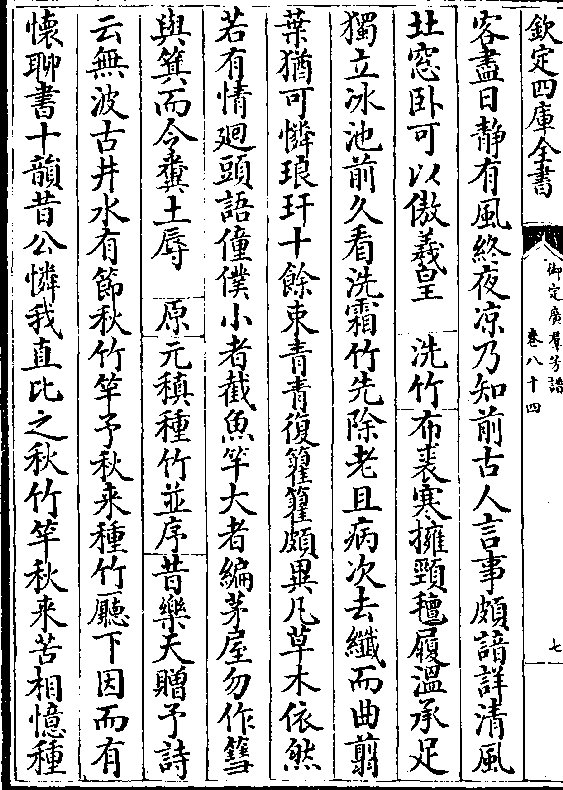 欽定四庫全書
御定廣羣芳譜
卷八十四
七
客盡日静有風終夜凉乃知前古人言事頗諳詳清風
北窓卧可以傲羲皇　洗竹布裘寒擁頸氊履溫承足
獨立冰池前久看洗霜竹先除老且病次去纖而曲翦
葉猶可憐琅玕十餘束青青復籊籊頗異凡草木依然
若有情廻頭語僮僕小者截魚竿大者編茅屋勿作篲
與箕而令糞土辱　原元稹種竹並序昔樂天贈予詩
云無波古井水有節秋竹竿予秋来種竹廳下因而有
懷聊書十韻昔公憐我直比之秋竹竿秋来苦相憶種